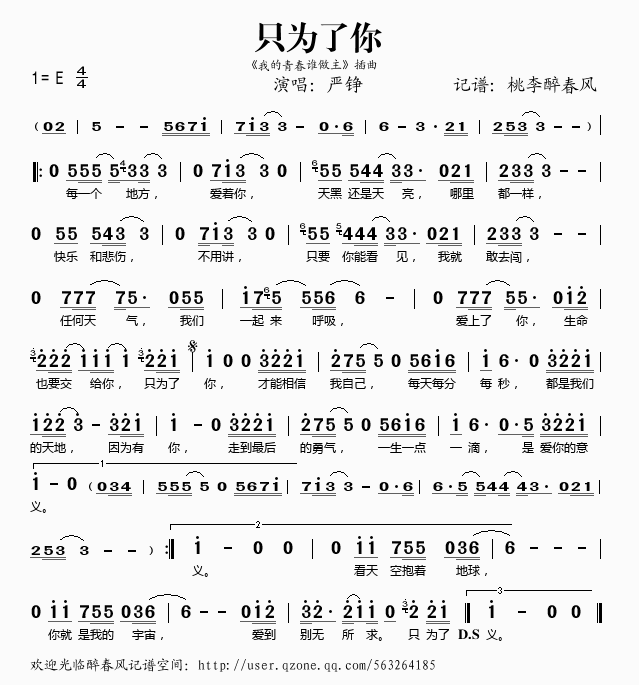 只为了你
《我的青春谁做主》插曲
1= E 4/4
演唱：严铮 记谱：桃李醉春风
( 02 | 5 - - 5671 | 713 3 - 0·6 | 6 - 3·21 | 253 3 - - )
0 555 5 4 33 3 | 0 713 3 0 | 6 55 544 33· 021 | 233 3 - -
每一个 地方， 爱着你， 天黑 还是天 亮， 哪里 都一样，
0 55 543 3 | 0 713 3 0 | 6 55 5 444 33· 021 | 233 3 - -
快乐 和悲伤， 不用讲， 只要 你能看 见， 我就 敢去闯，
0 777 75· 055 | 17 6 5 556 6 - | 0 777 55· 012
任何天 气， 我们 一起 来 呼吸， 爱上了 你， 生命
3 222 111 1 3 221 | 1 0 0 3221 | 275 5 0 5616 | 1 6· 0· 3221
也要交 给你， 只为了 你， 才能相信 我自己， 每天每分 每 秒， 都是我们
122 3 - 321 | 1 - 0 3221 | 275 5 0 5616 | 1 6· 0·5 3221
的天地， 因为有 你， 走到最后 的勇气， 一生一点 一 滴， 是 爱你的意
1
1 - 0 ( 034 | 555 5 0 5671 | 713 3 - 0·6 | 6·5 544 43· 021
义。
2
253 3 - - ) :| 1 - 0 0 | 0 11 755 036 | 6 - - -
义。 看天 空抱着 地球，
3
0 11 755 036 | 6 - - 012 | 32· 211 0 3 2 21 | 1 - 0 0
你就 是我的 宇宙， 爱到 别无 所 求。 只 为了 D.S 义。
欢迎光临醉春风记谱空间：http://user.qzone.qq.com/563264185